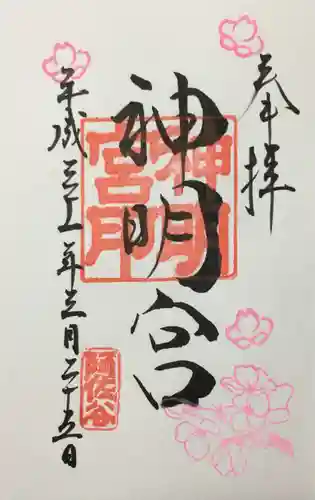 奉拝
神明宮
平成三十一年三月二十五日
神明宮
阿佐谷